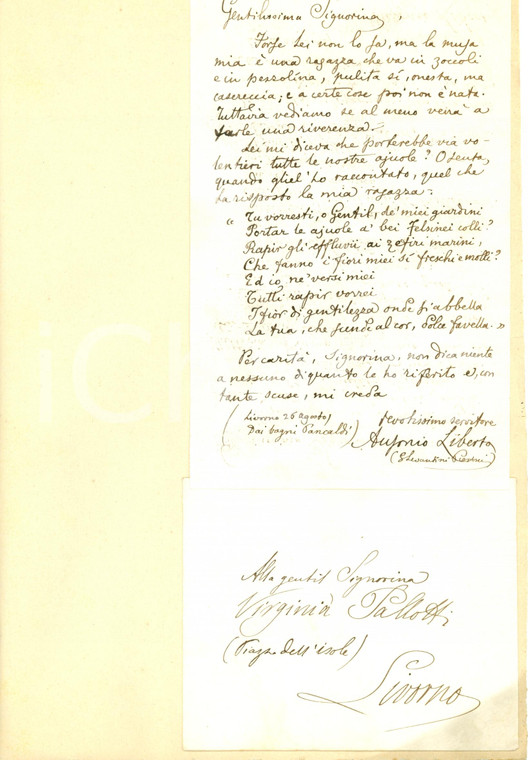 Gentilissima Signorina,
Forse Lei non lo sa, ma la musa
mia è una ragazza che va in zoccoli
e in pezzolina, pulita sì, onesta, ma
casereccia; e a certe cose poi non è nata.
Tuttavia vediamo se al meno verrà a
farle una riverenza.
Lei mi diceva che porterebbe via vo-
lentieri tutte le nostre ajuole? O senta,
quando gliel'ho raccontato, quel che
ha risposto la mia ragazza:
" Tu vorresti, o Gentil, de' miei giardini
Portar le ajuole a' bei felsinei colli?
Rapir gli effluvii ai zefiri marini,
Che fanno i fiori miei sì freschi e molli?
Ed io, ne' versi miei
Tutti rapir vorrei
I fior di gentilezza onde s'abbella
La tua, che scende al cor, dolce favella. "
Per carità, Signorina, non dica niente
a nessuno di quanto le ho riferito e, con
tante scuse, mi creda
(Livorno 26 agosto)
Dai bagni Pancaldi)
devotissimo servitore
Ausonio Liberto
Alla gentil Signorina
Virginia Pallotti
(Piazza dell'isole)
Livorno